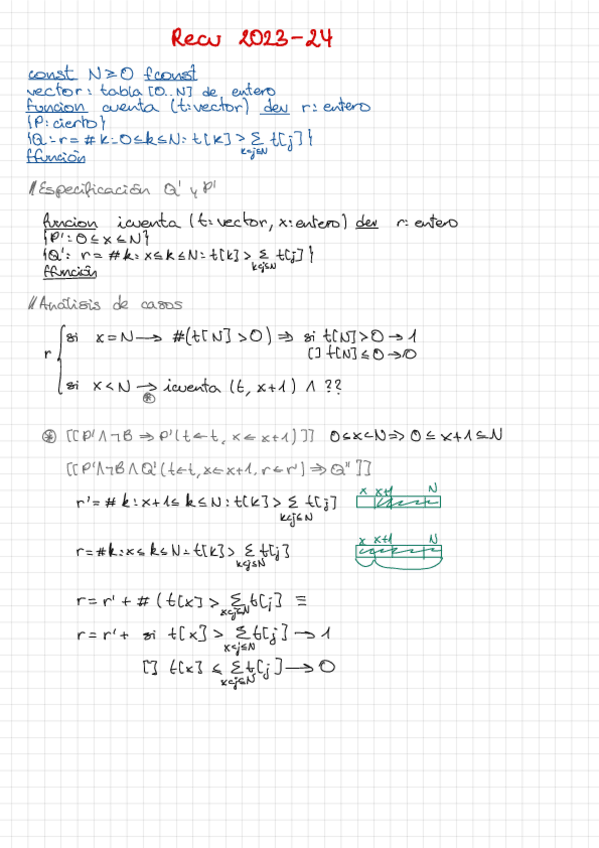 Recu 2023-24
const N≥0 fconst
vector: tabla [0..N] de entero
funcion cuenta (t:vector) dev r: entero
{P: cierto}
{Q: r = # k: 0≤k≤N: t[k] > Σ t[j]}
k<j≤N
ffunción
//Especificación Q' y P'
funcion icuenta (t: vector, x:entero) dev r: entero
{P': 0≤x≤N}
{Q': r = # k: x≤k≤N: t[k] > Σ t[j]}
k<j≤N
ffunción
//Análisis de casos
si x=N → #(t[N]>0) ⇒ si t[N]>0 → 1
[] t[N]≤0 → 0
r
si x<N → icuenta (t, x+1) ∧ ??
⊛
⊛ [[P'∧¬B ⇒ P'(t←t, x←x+1)]] 0≤x<N ⇒ 0≤x+1≤N
[[P'∧¬B∧Q'(t←t,x←x+1,r←r') ⇒ Q'']]
r' = # k: x+1≤k≤N: t[k] > Σ t[j] x x+1 N
k<j≤N
r = # k: x≤k≤N: t[k] > Σ t[j] x x+1 N
k<j≤N
r = r' + # (t[x] > Σ t[j] ≡
x<j≤N
r = r' + si t[x] > Σ t[j] → 1
x<j≤N
[] t[x] ≤ Σ t[j] → 0
x<j≤N